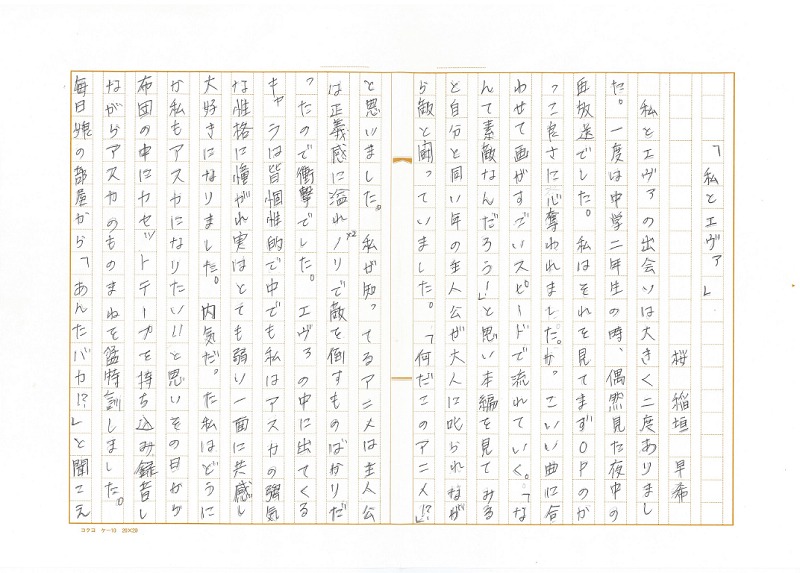 「私とエヴァ」
桜 稲垣 早希
私とエヴァの出会いは大きく二度ありまし
た。一度は中学二年生の時、偶然見た夜中の
再放送でした。私はそれを見てまずOPのか
っこ良さに心奪われました。か、こいい曲に合
わせて画がすごいスピードで流れていく。「な
んて素敵なんだろう!」と思い本編を見てみる
と自分と同い年の主人公が大人に叱られなが
ら敵と闘っていました。「何だこのアニメ!?」
と思いました。私が知ってるアニメは主人公
は正義感に溢れノリ×2で敵を倒すものばかりだ
ったので衝撃でした。エヴァの中に出てくる
キャラは皆個性的で中でも私はアスカの強気
な性格に憧がれ実はとても弱い一面に共感し
大好きになりました。内気だった私はどうに
か私もアスカになりたい!!と思いその日から
布団の中にカセットテープを持ち込み録音し
ながらアスカのものまねを猛特訓しました。
毎日娘の部屋から「あんたバカ!?」と聞こえ
コクヨ ケ-10 20×20